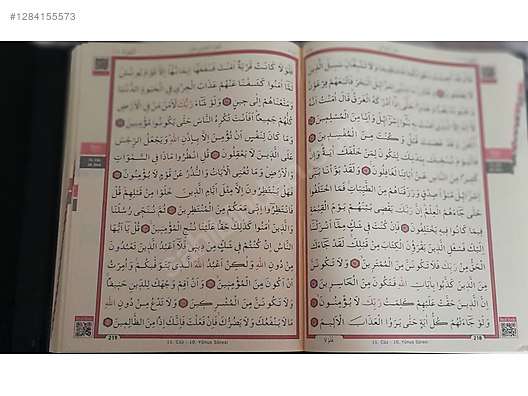 #1284155573
قَالَ قَدْ اُجِيبَتْ دَعْوَتُكُمَا فَاسْتَقِيمَا وَلَا تَتَّبِعَانِّ سَبِيلَ الَّذِينَ
لَا يَعْلَمُونَ وَجَاوَزْنَا بِبَنِي اِسْرَائِلَ الْبَحْرَ فَاَتْبَعَهُمْ فِرْعَوْنُ
وَجُنُودُهُ بَغْيًا وَعَدْوًا حَتّٰى اِذَا اَدْرَكَهُ الْغَرَقُ قَالَ اٰمَنْتُ اَنَّهُ
لَا اِلٰهَ اِلَّا الَّذِي اٰمَنَتْ بِهِ بَنُوا اِسْرَائِلَ وَاَنَا مِنَ الْمُسْلِمِينَ
آٰلْـٰٔنَ وَقَدْ عَصَيْتَ قَبْلُ وَكُنْتَ مِنَ الْمُفْسِدِينَ
فَالْيَوْمَ نُنَجِّيكَ بِبَدَنِكَ لِتَكُونَ لِمَنْ خَلْفَكَ اٰيَةً وَاِنَّ
كَثِيرًا مِنَ النَّاسِ عَنْ اٰيَاتِنَا لَغَافِلُونَ وَلَقَدْ بَوَّأْنَا بَنِي
اِسْرَائِلَ مُبَوَّاَ صِدْقٍ وَرَزَقْنَاهُمْ مِنَ الطَّيِّبَاتِ فَمَا اخْتَلَفُوا
حَتّٰى جَاءَهُمُ الْعِلْمُ اِنَّ رَبَّكَ يَقْضِي بَيْنَهُمْ يَوْمَ الْقِيٰمَةِ
فِيمَا كَانُوا فِيهِ يَخْتَلِفُونَ فَاِنْ كُنْتَ فِي شَكٍّ مِمَّا اَنْزَلْنَا
اِلَيْكَ فَسْـَٔلِ الَّذِينَ يَقْرَؤُنَ الْكِتَابَ مِنْ قَبْلِكَ لَقَدْ جَاءَكَ
الْحَقُّ مِنْ رَبِّكَ فَلَا تَكُونَنَّ مِنَ الْمُمْتَرِينَ وَلَا تَكُونَنَّ
مِنَ الَّذِينَ كَذَّبُوا بِاٰيَاتِ اللّٰهِ فَتَكُونَ مِنَ الْخَاسِرِينَ
اِنَّ الَّذِينَ حَقَّتْ عَلَيْهِمْ كَلِمَتُ رَبِّكَ لَا يُؤْمِنُونَ
وَلَوْ جَاءَتْهُمْ كُلُّ اٰيَةٍ حَتّٰى يَرَوُا الْعَذَابَ الْاَلِيمَ
218
11. Cüz - 10. Yûnus Sûresi
فَلَوْلَا
فَلَوْلَا كَانَتْ قَرْيَةٌ اٰمَنَتْ فَنَفَعَهَا اِيمَانُهَا اِلَّا قَوْمَ يُونُسَ
لَمَّا اٰمَنُوا كَشَفْنَا عَنْهُمْ عَذَابَ الْخِزْيِ فِي الْحَيٰوةِ الدُّنْيَا
وَمَتَّعْنَاهُمْ اِلٰى حِينٍ وَلَوْ شَاءَ رَبُّكَ لَاٰمَنَ مَنْ فِي الْاَرْضِ
كُلُّهُمْ جَمِيعًا اَفَاَنْتَ تُكْرِهُ النَّاسَ حَتّٰى يَكُونُوا مُؤْمِنِينَ
وَمَا كَانَ لِنَفْسٍ اَنْ تُؤْمِنَ اِلَّا بِاِذْنِ اللّٰهِ وَيَجْعَلُ الرِّجْسَ
عَلَى الَّذِينَ لَا يَعْقِلُونَ قُلِ انْظُرُوا مَاذَا فِي السَّمٰوَاتِ
وَالْاَرْضِ وَمَا تُغْنِي الْاٰيَاتُ وَالنُّذُرُ عَنْ قَوْمٍ لَا يُؤْمِنُونَ
فَهَلْ يَنْتَظِرُونَ اِلَّا مِثْلَ اَيَّامِ الَّذِينَ خَلَوْا مِنْ قَبْلِهِمْ قُلْ
فَانْتَظِرُوا اِنِّي مَعَكُمْ مِنَ الْمُنْتَظِرِينَ ثُمَّ نُنَجِّي رُسُلَنَا
وَالَّذِينَ اٰمَنُوا كَذٰلِكَ حَقًّا عَلَيْنَا نُنْجِ الْمُؤْمِنِينَ قُلْ يَا اَيُّهَا
النَّاسُ اِنْ كُنْتُمْ فِي شَكٍّ مِنْ دِينِي فَلَا اَعْبُدُ الَّذِينَ تَعْبُدُونَ
مِنْ دُونِ اللّٰهِ وَلٰكِنْ اَعْبُدُ اللّٰهَ الَّذِي يَتَوَفّٰيكُمْ وَاُمِرْتُ
اَنْ اَكُونَ مِنَ الْمُؤْمِنِينَ وَاَنْ اَقِمْ وَجْهَكَ لِلدِّينِ حَنِيفًا
وَلَا تَكُونَنَّ مِنَ الْمُشْرِكِينَ وَلَا تَدْعُ مِنْ دُونِ اللّٰهِ
مَا لَا يَنْفَعُكَ وَلَا يَضُرُّكَ فَاِنْ فَعَلْتَ فَاِنَّكَ اِذًا مِنَ الظَّالِمِينَ
219
11. Cüz - 10. Yûnus Sûresi